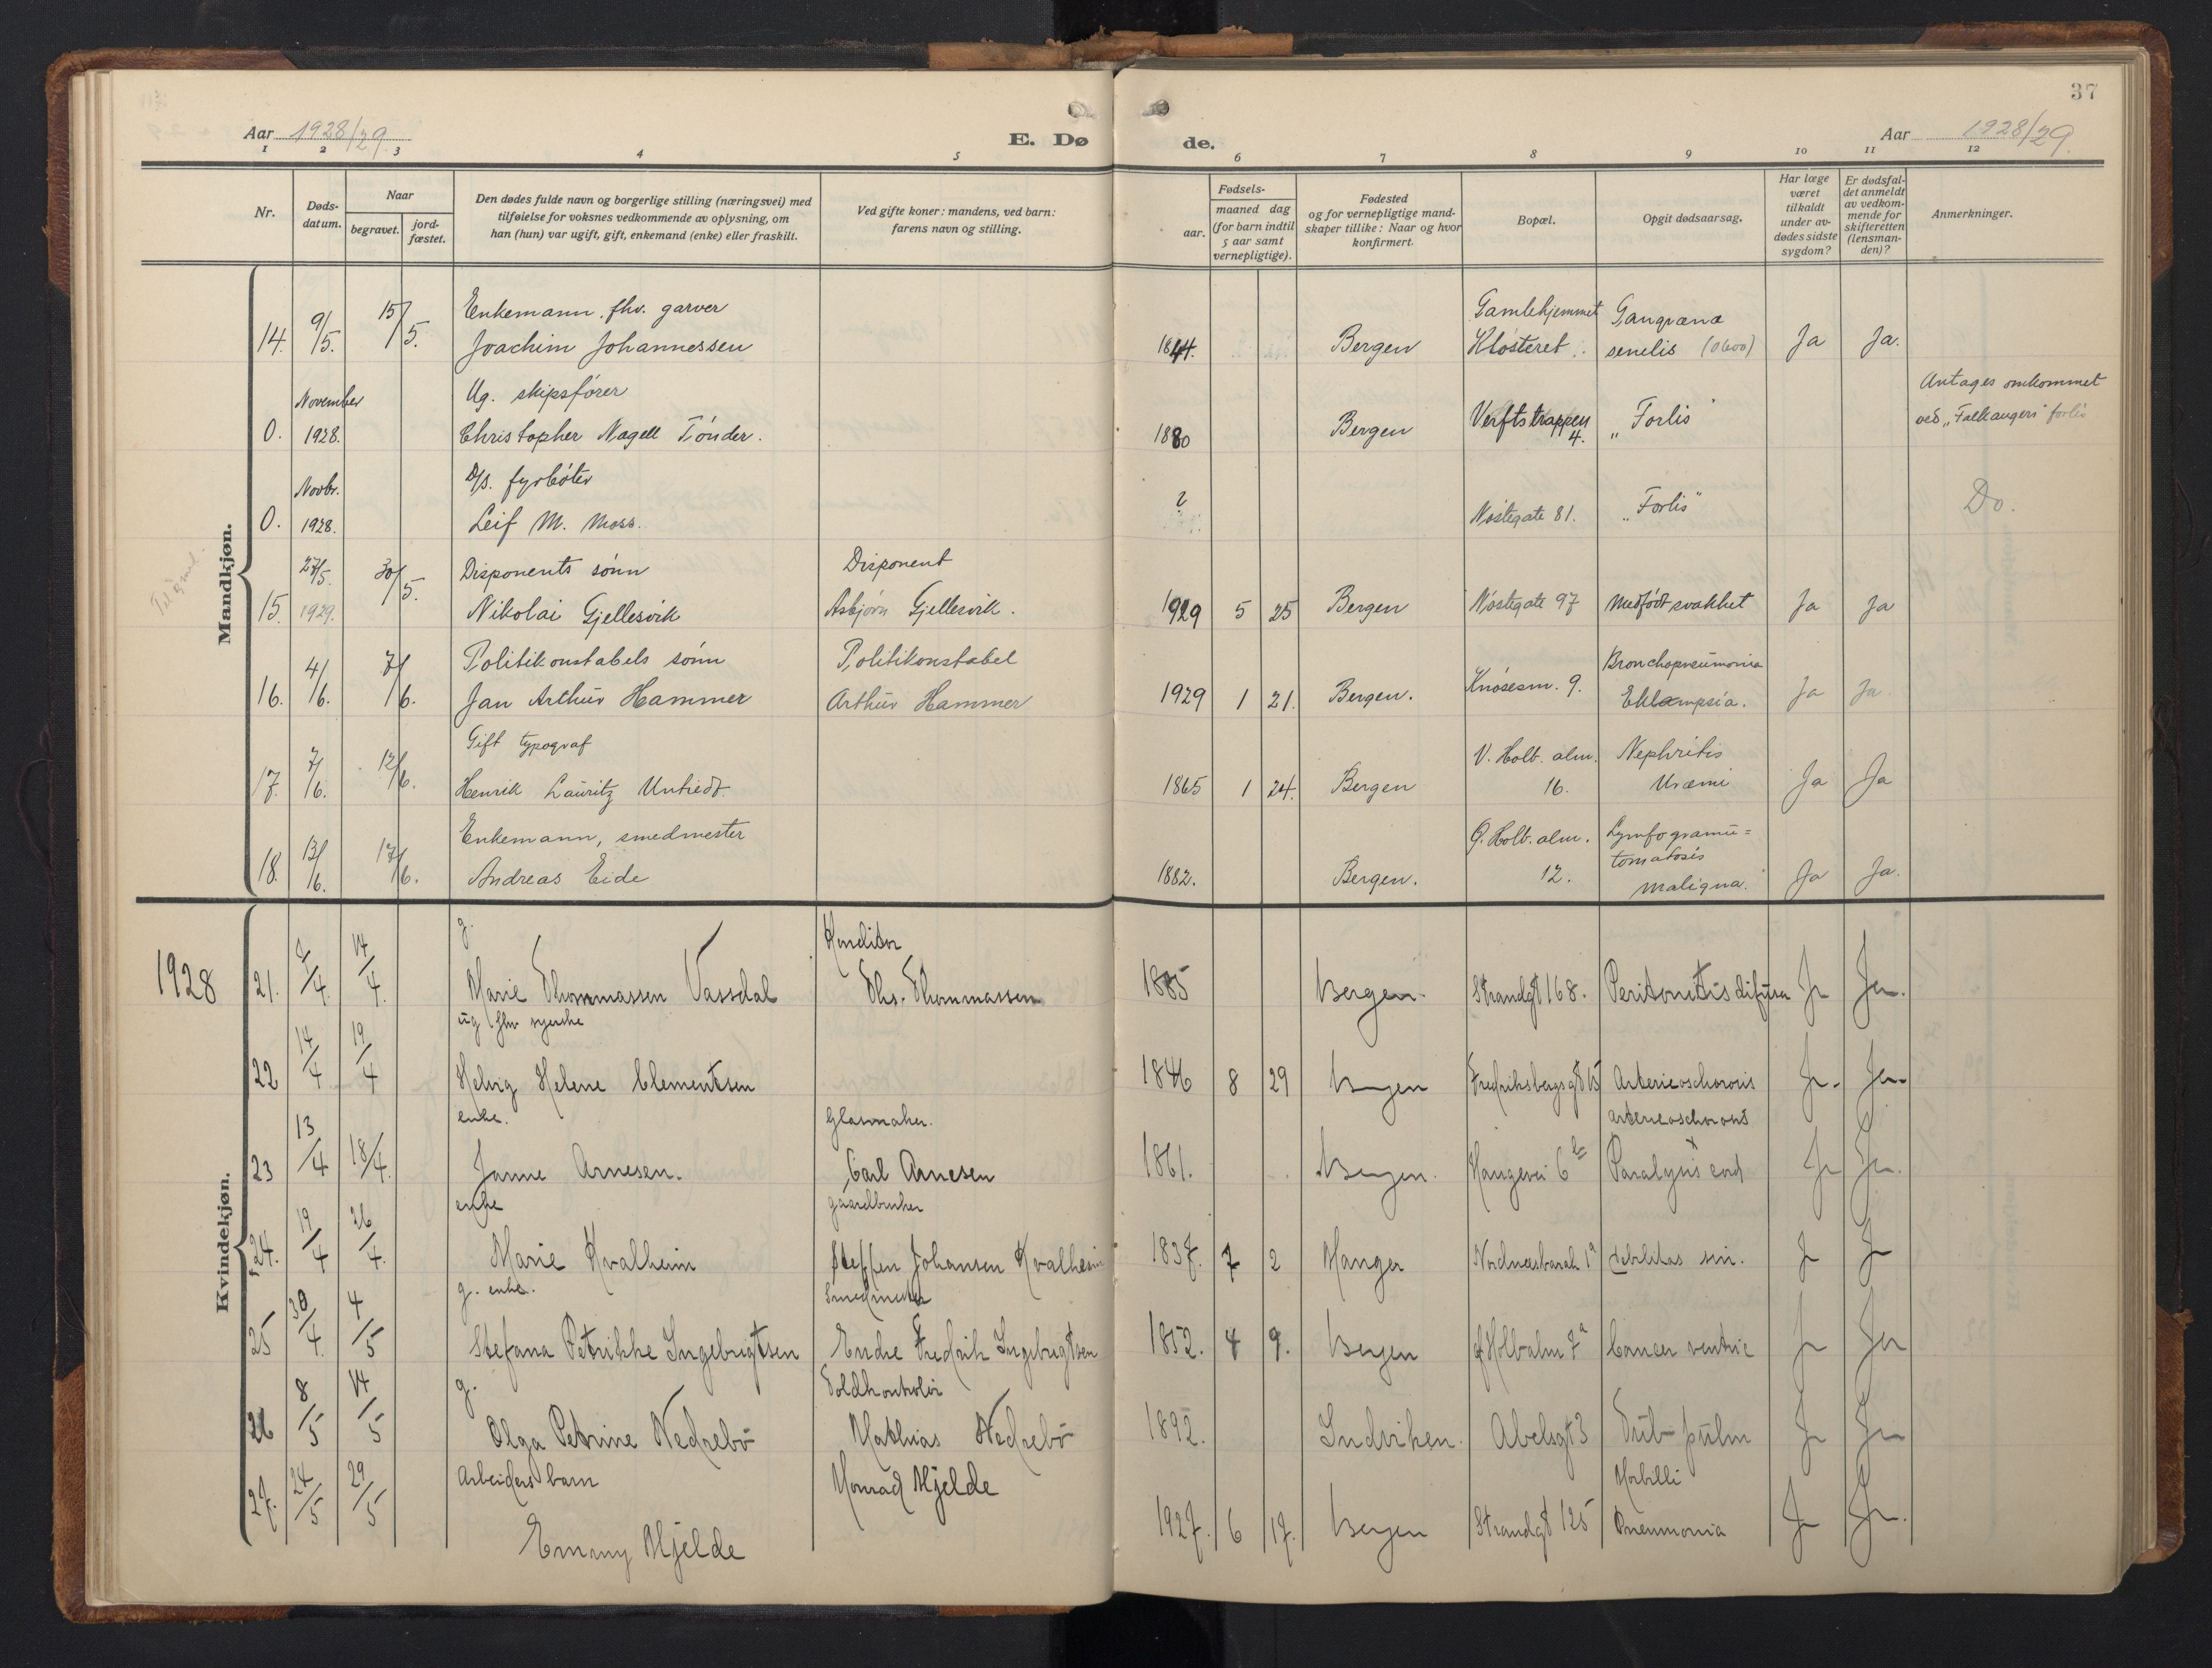 37
Aar 1928/29.
E. Dø
de.
Aar 1928/29.
1 2 3 4 5 6 7 8 9 10 11 12
Nr.
Døds-
datum.
Naar
begravet.
jord-
fæstet.
Den dødes fulde navn og borgerlige stilling (næringsvei) med
tilføielse for voksnes vedkommende av oplysning, om
han (hun) var ugift, gift, enkemand (enke) eller fraskilt.
Ved gifte koner: mandens, ved barn:
farens navn og stilling.
Fødsels-
aar.
maaned dag
(for barn indtil
5 aar samt
vernepligtige).
Fødested
og for vernepligtige mand-
skaper tillike: Naar og hvor
konfirmert.
Bopæl.
Opgit dødsaarsag.
Har læge
været
tilkaldt
under av-
dødes sidste
sygdom?
Er dødsfal-
det anmeldt
av vedkom-
mende for
skifteretten
(lensman-
den)?
Anmerkninger.
Mandkjøn.
Enkemann, fhv. garver Gamlehjemmet Gangræna
14. 9/5. 15/5. Joachim Johannessen 1844. Bergen Klosteret. senilis (0600) Ja Ja.
November Ug. skipsfører Antages omkommet
0. 1928. Christopher Nagell Tønder. 1880 Bergen Verftstrappen 4. "Forlis" ved "Falkangers" forlis
Novbr. D/s. fyrbøter
0. 1928. Leif M. Moss. ? Nøstegate 81. "Forlis" Do.
27/5. 30/5. Disponents sønn Disponent
15. 1929. Nikolai Gjellesvik Asbjørn Gjellesvik. 1929 5 25 Bergen Nøstegate 97 Medfødt svakhet Ja Ja
Politikonstabels sønn Politikonstabel Bronchopneumonia
16. 4/6. 7/6. Jan Arthur Hammer Arthur Hammer 1929 1 21. Bergen. Knøsesm. 9. Eklampsia. Ja Ja.
Gift typograf V. Holb. alm. Nephritis
17. 7/6. 12/6. Henrik Lauritz Untiedt. 1865 1 24. Bergen 16. Uræmi Ja Ja
Enkemann, smedmester Ø. Holb. alm. Lymfogranu=
tomatosis
18. 13/6. 17/6. Andreas Eide 1882. Bergen. 12. maligna. Ja Ja.
1928
Kvindekjøn.
g. Konditor
21. 14/4. Marie Thommassen Vassdal Ths. Thommassen 1885 Bergen. Strandgt 168. Peritonitis difusa Ja Ja.
ug fhv syerske
22 14/4 19/4 Helvig Helene Clementsen 1846 8 29 Bergen Fredriksbergsgt 15 Arterieoscherosis Ja. Ja.
enke. Glasmaker. arterieoscherosis
23 13/4 18/4. Janne Arnesen. Carl Arnesen 1861. Bergen. Haugevei 6 Paralysis cord Ja Ja.
enke gaardbruker
24. 19/4 26/4. Marie Kvalheim Steffen Johansen Kvalheim 1837. 7 2 Manger Nordnesbarak 1a debilitas sen. Ja Ja
g. enke. Smedmester
25 30/4. 4/5 Stefana Petrikke Ingebrigtsen Endre Fredrik Ingebrigtsen 1852. 4 9. Bergen Holbalm 7a Cancer ventric Ja Ja
g. Toldkontrolør
26 8/5 14/5 Olga Petrine Nedrebø Mathias Nedrebø 1892. Indviken. Abelsgt 3 Tub pulm Ja Ja
Arbeiders barn Konrad Hjelde Morbilli
27. 24/5 29/5 Emmy Hjelde 1927. 6 17. Bergen Strandgt 125 Pneumonia Ja Ja.